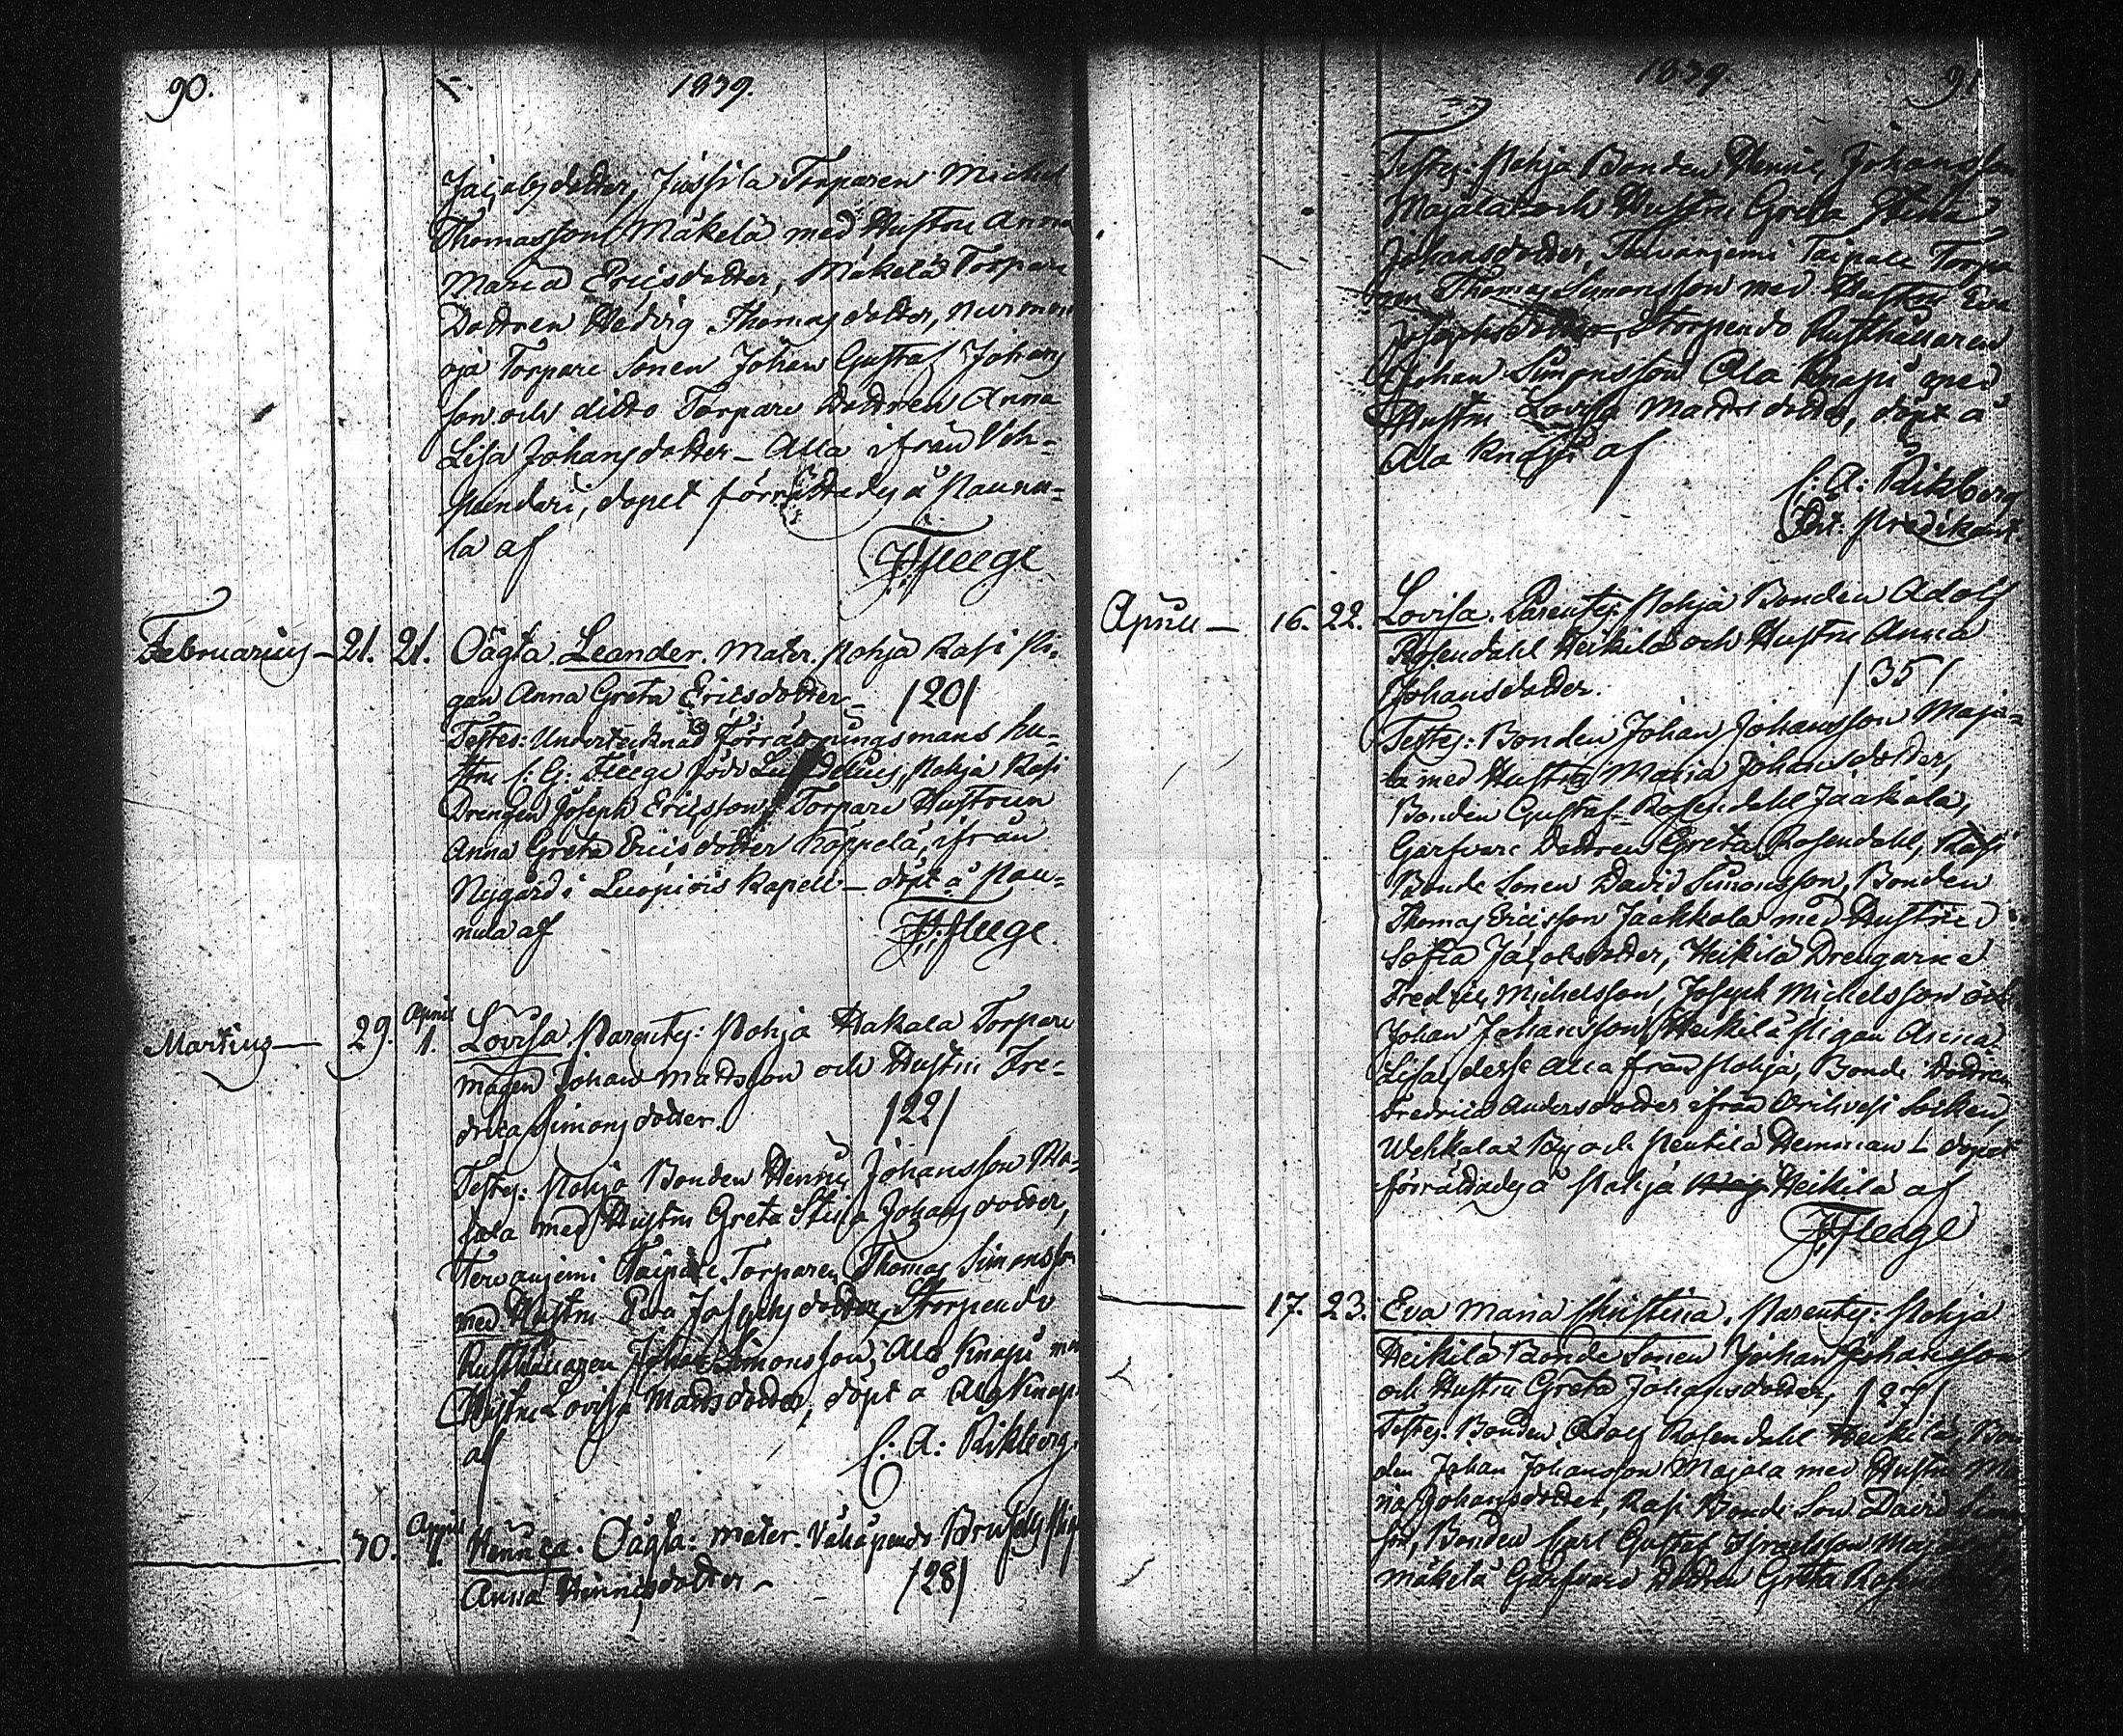 90.
1839.
Jacobsdotter, Jussila Torparen Michel
Thomasson Mäkelä med Hustru Anna
Maria Ericsdotter, Mäkelä Torpare
Dottren Hedvig Thomasdotter, Nurmen
oja Torpare Sonen Johan Gustaf Johans
son och ditto Torpare Dottren Anna
Lisa Johansdotter – Alla ifrån Veh=
pundari, dopet förrättades å Rauna=
la af
Fleege
Februarius – 21. 21. Oägta. Leander. Mater. Pohja Rasi Pi=
gan Anna Greta Ericsdotter – /20/
Testes: Undertecknad Förrättningsmans hu=
stru C: G: Fleege född, Pohja Rasi
Drengen Joseph Ericsson, Torpare Hustrun
Anna Greta Ericsdotter Koppelä, ifrån
Nygård i Luopiois Kapell – döpt å Rau=
nula af
Fleege
Martius – 29. April 1. Lovisa. Parentes: Pohja Hakala Torpare
mågen Johan Mattsson och Hustru Fre=
drica Simonsdotter. /22/
Testes: Pohja Bonden Henric Johansson Ma=
jala med Hustru Greta Stina Johansdotter,
Tervaniemi Taipale Torparen Thomas Simonsson
med Hustru Eva Josephsdotter, Storpendo
Rusthållaren Johan Simonsson, Ala Knapi med
Hustru Lovisa Mattsdotter, döpt å Ala Knapi
af
C: A: Rikberg.
30. April 1. Henrica. Oägta: Mater. Vähäpendo Pig
Anna Henricsdotter – /28/
1839
91
Testes: Pohja Bonden Henric Johansson
Majala och Hustru Greta Stina
Johansdotter, Tervaniemi Taipale Torpa
ren Thomas Simonsson med Hustru Eva
Josephsdotter, Storpendo Rusthållaren
Johan Simonsson Ala Knapi med
Hustru Lovisa Mattsdotter, döpt å
Ala Knapi af
C: A: Rikberg
Ord. Predikant
Aprill – 16. 22. Lovisa. Parentes: Pohja Bonden Adolf
Rosendahl Heikilä och Hustru Anna
Johansdotter. /35/
Testes: Bonden Johan Johansson Maja=
la med Hustru Maria Johansdotter,
Bonden Gustaf Rosendahl Jaakola,
Garfvare Dottren Greta Rosendahl, Rasi
Bonde Sonen David Simonsson, Bonden
Thomas Ericsson Jaakkola med Hustru
Sofia Jacobsdotter, Heikilä Drengarne
Fredric Michelsson, Joseph Michelsson och
Johan Johansson, Heikilä Pigan Anna
Lisa, desse alla från Pohja, Bonde Dottren
Fredrica Andersdotter ifrån Orihvesi Socken,
Wehkalax By och Pentilä Hemman – dopet
förrättades å Pohja Heikilä af
Fleege
17. 23. Eva Maria Christina. Parentes: Pohja
Heikilä Bonde Sonen Johan Johansson
och Hustru Greta Johansdotter, /27/
Testes: Bonden Adolf Rosendahl Heikilä, Bon
den Johan Johansson Majala med Hustru Ma
ria Johansdotter, Rasi Bonde Son David Simon
son, Bonden Carl Gustaf Israelsson
Mäkelä Garfvare Dottren Greta Rosendahl